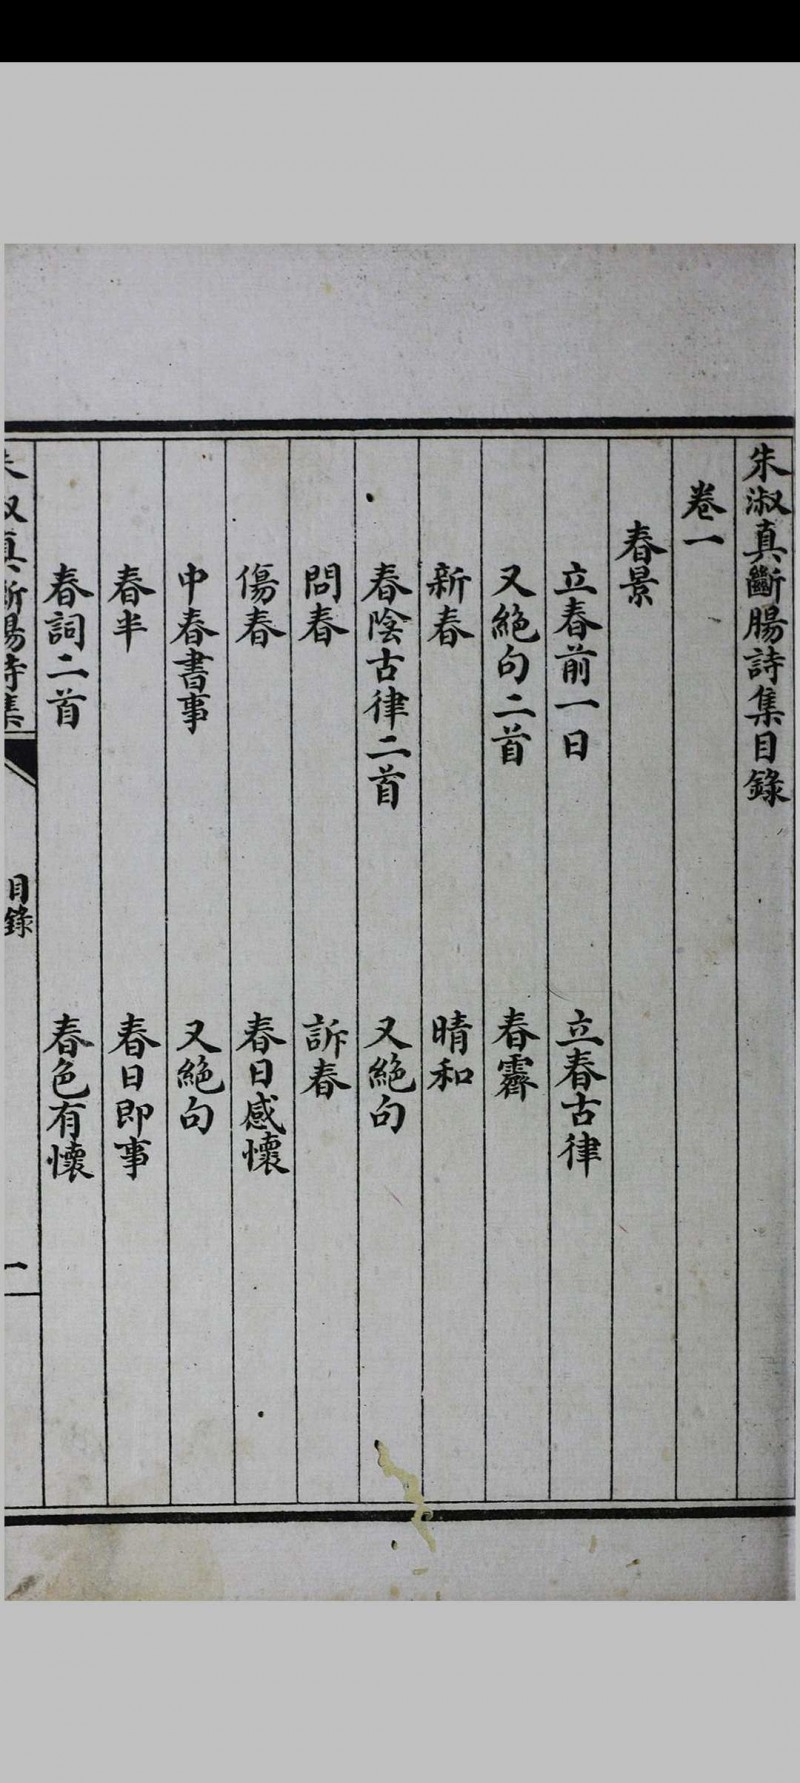 朱淑真斷腸詩集目錄
卷一
春景
立春前一日 立春古律
又絕句二首 春霽
新春 晴和
春陰古律二首 又絕句
問春 訴春
傷春 春日感懷
中春書事 又絕句
春半 春日即事
春詞二首 春色有懷
朱淑真斷腸詩集 目錄 一